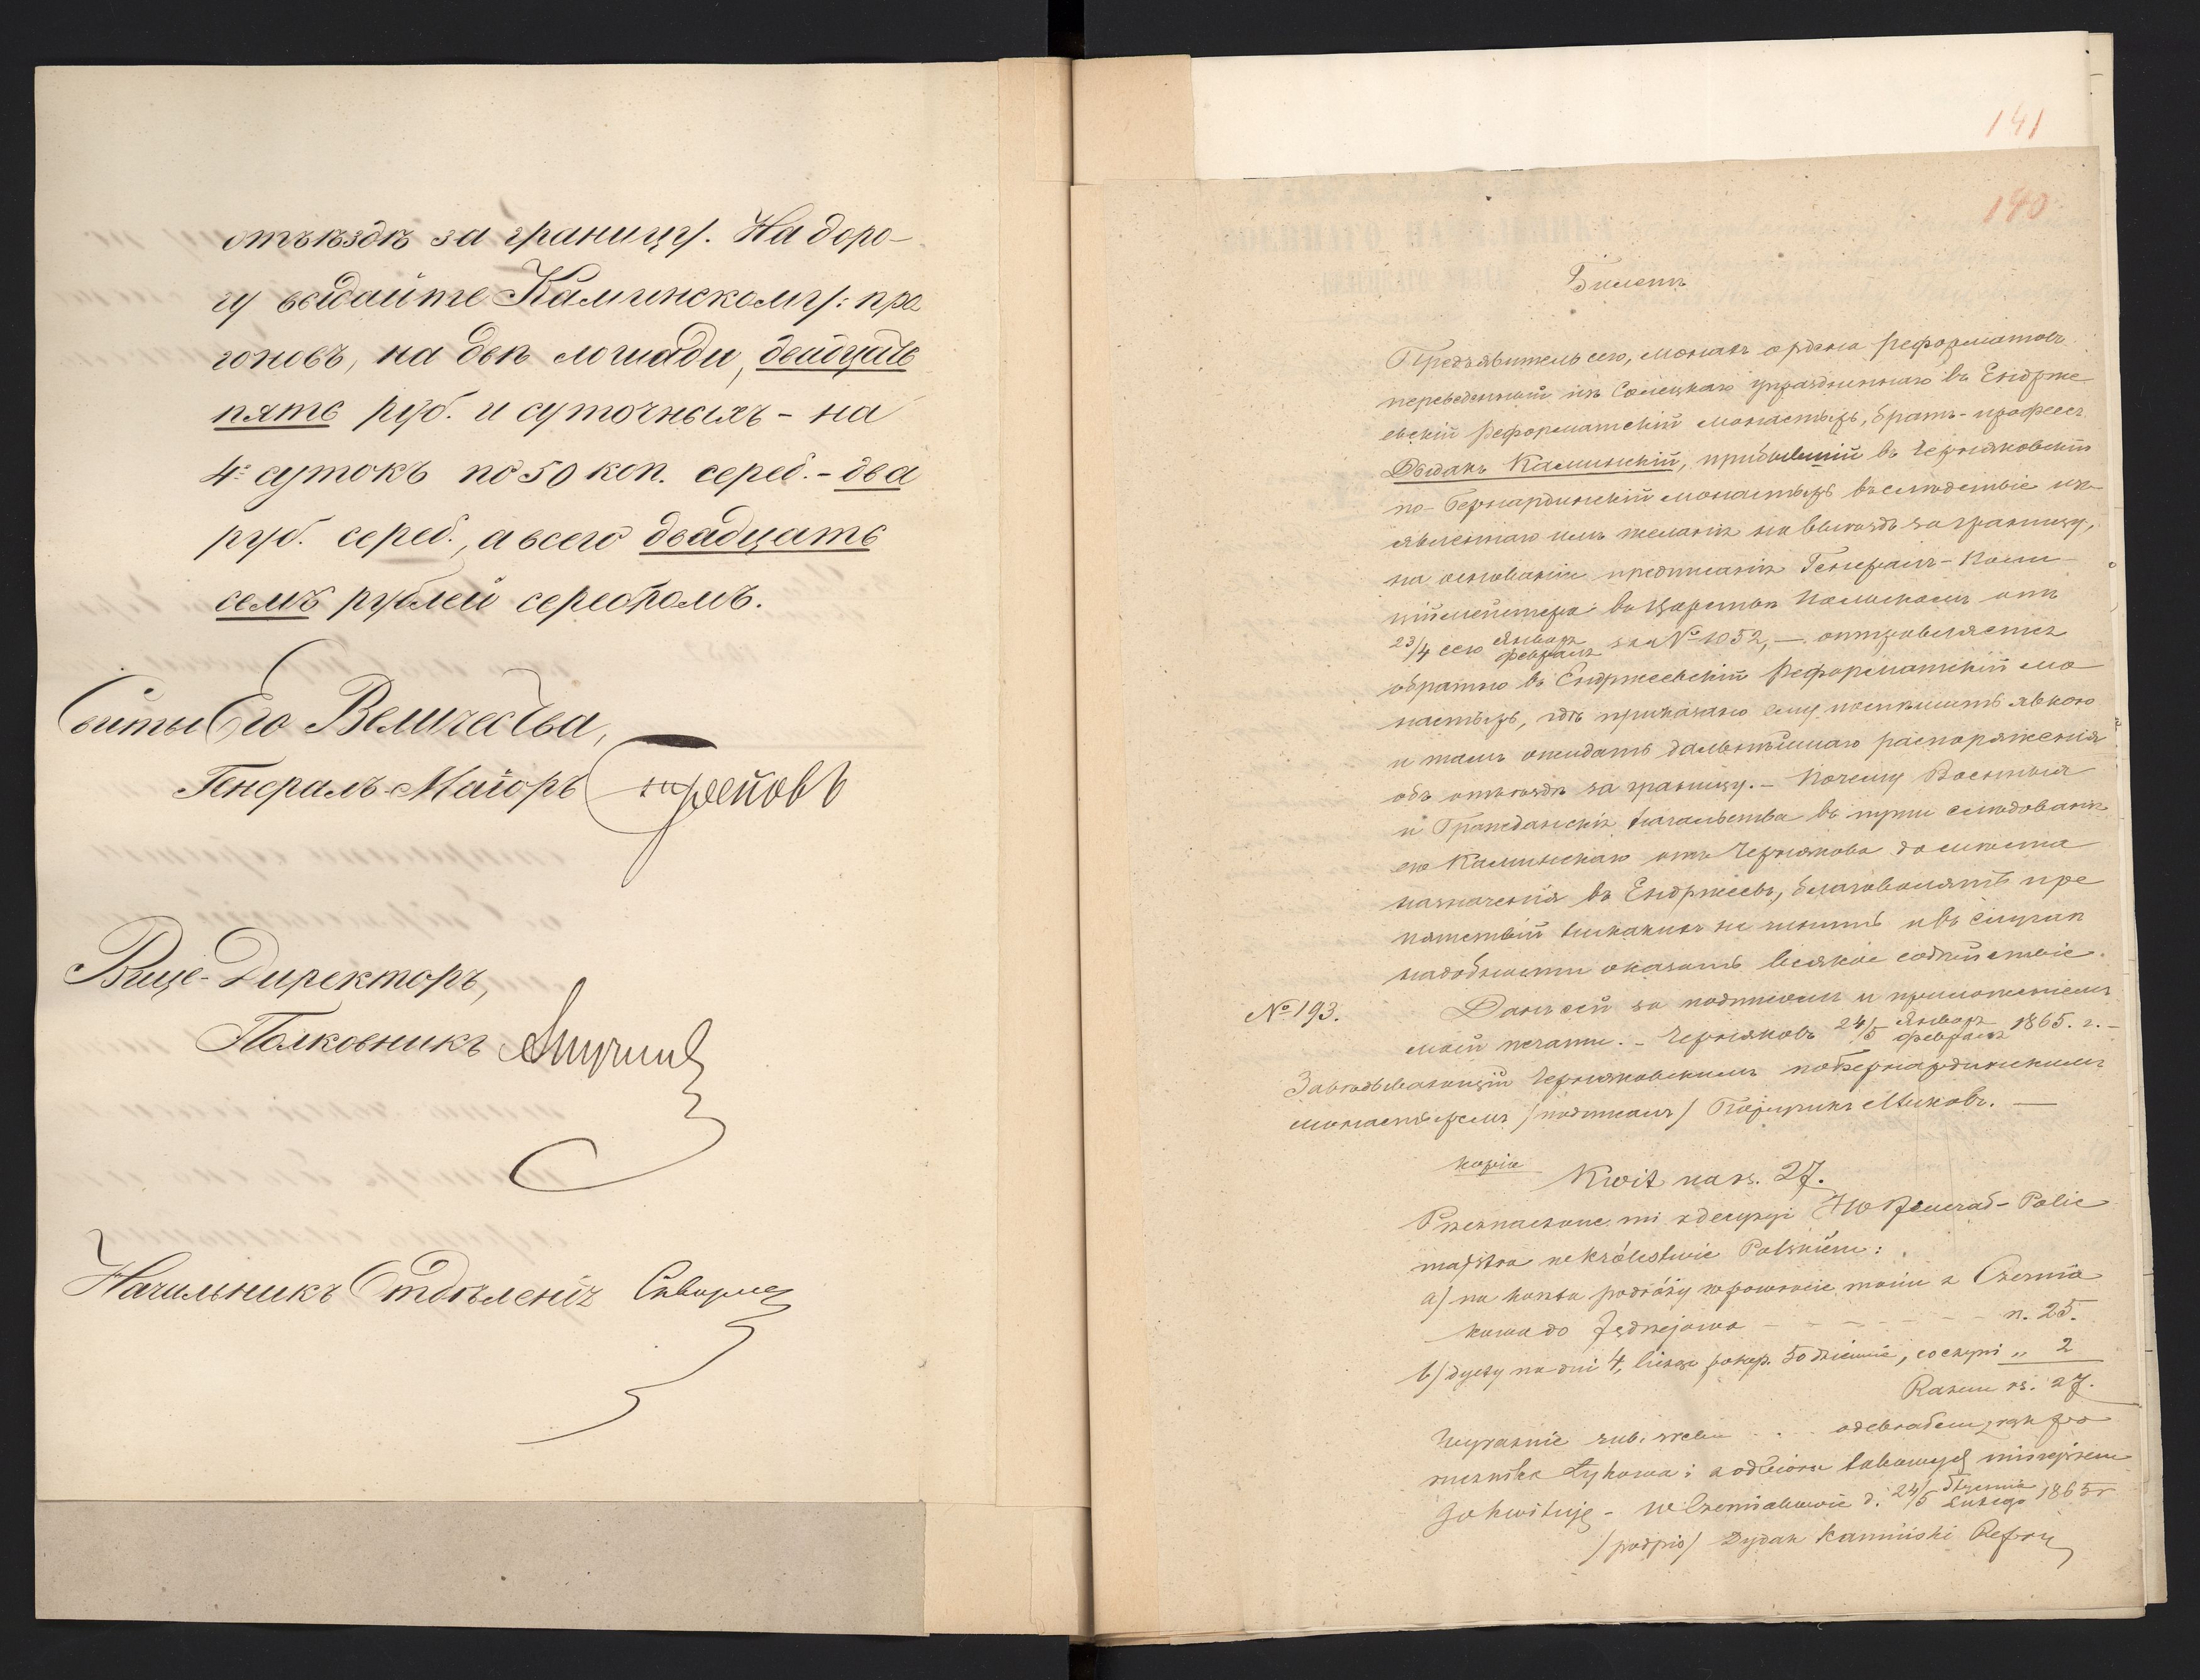 отъѣздѣ за границу. На доро-
гу выдайте Каминскому: про
гоновъ, на двѣ лошади, двадцать
пять руб. и суточныхъ - на
4. сутокъ по 50 коп. сереб. - два
руб. сереб., а всего двадцать
семь рублей серебромъ.
Свиты Его Величества,
Генералъ-Маіоръ Треповъ
Вице-Директоръ,
Полковникъ
Начальникъ Отдѣленія
141
140
Билетъ
Предъявитель сего, монахъ ордена реформатовъ
переведенный изъ Солецкаго упраздненнаго въ Ендрже
евскій реформатскій монастырь, братъ-профессъ
Дыдакъ Каминскій, прибывшій въ Черняковскій
по-Бернардинскій монастырь вслѣдствіе изъ-
явленнаго имъ желанія на выѣздъ за границу,
на основаніи предписанія Генералъ-Поли-
ціймейстера въ Царствѣ Польскомъ отъ
23/4 сего Января/Февраля за № 1052, — отправляется
обратно въ Ендржеевскій Реформатскій мо
настырь, гдѣ приказано ему поспѣшить явкою
и тамъ ожидать дальнѣйшаго распоряженія
объ отъѣздѣ за границу. - Почему Военныя
и Гражданскія начальства въ пути слѣдованія
его Каминскаго отъ Чернякова до мѣста
назначенія въ Ендржеевъ, благоволятъ пре
пятствій никакихъ не чинить и въ случаѣ
надобности оказать всякое содѣйствіе.
№ 193. Данъ сей за подписомъ и приложеніемъ
моей печати. - Черняковъ 24/5 Января/Февраля 1865. г. -
Завѣдывающій Черняковскимъ побернардинскимъ
монастыремъ /подписалъ/ Поручикъ —
копія
Kwit na rs. 27.
Przeznaczone mi z decyzyi JW Jenerał-Polic
majstra w Królestwie Polskiém:
a) na koszta podróży w powrocie moim z Czernia
kowa do Jędrzejowa - - - - - - - r. 25.
b) dyety na dni 4, licząc po kop. 50 dziennie, co czyni „ 2
Razem rs. 27.
Wyraźnie rub. srebr . . . odebrałem z rąk po
rucznika i z odbioru takowych niniejszem
go kwituję - w Czerniakowie d. 24/5 Stycznia/Lutego 1865 r
/podpis/ Dydak Kamiński